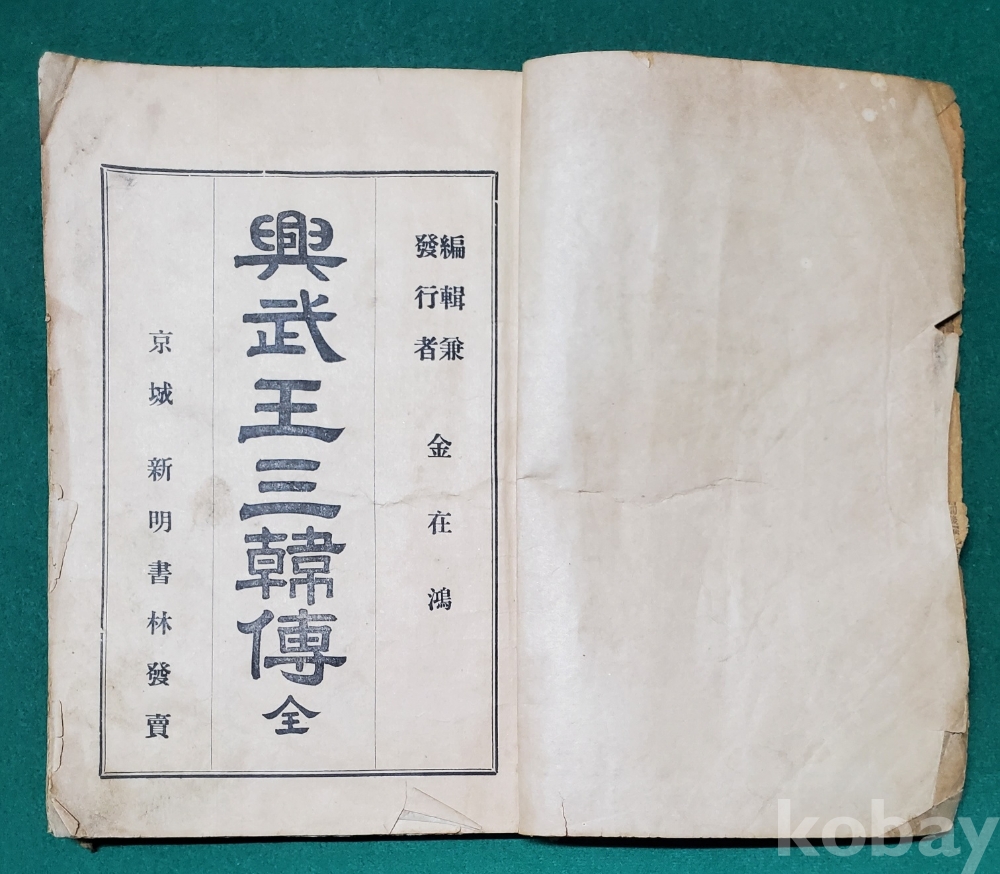 編輯兼
發行者
金在鴻
興武王三韓傳 全
京城 新明書林發賣
kobay